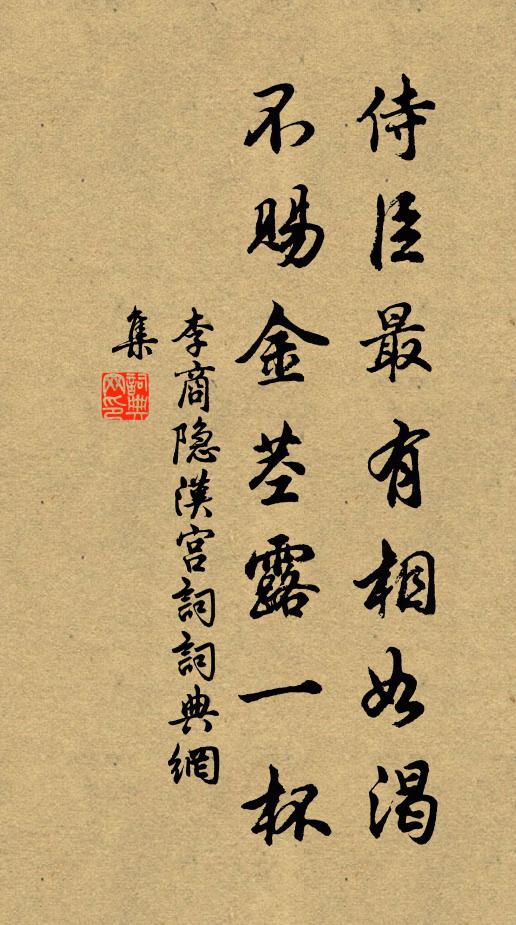 侍臣最有相如渴
不賜金茎露一杯
李商隐漢宮詞詞典網
集
詞典
网印